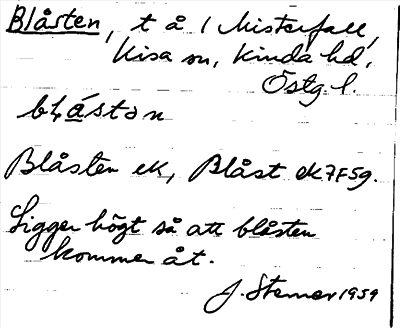 Blåsten, t å 1 Misterfall,
Kisa sn, Kinda hd,
Östg. l.
bɫåstən
Blåsten ek, Blåst ek 7F5g.
Ligger högt så att blåsten
kommer åt.
J. Sterner 1959